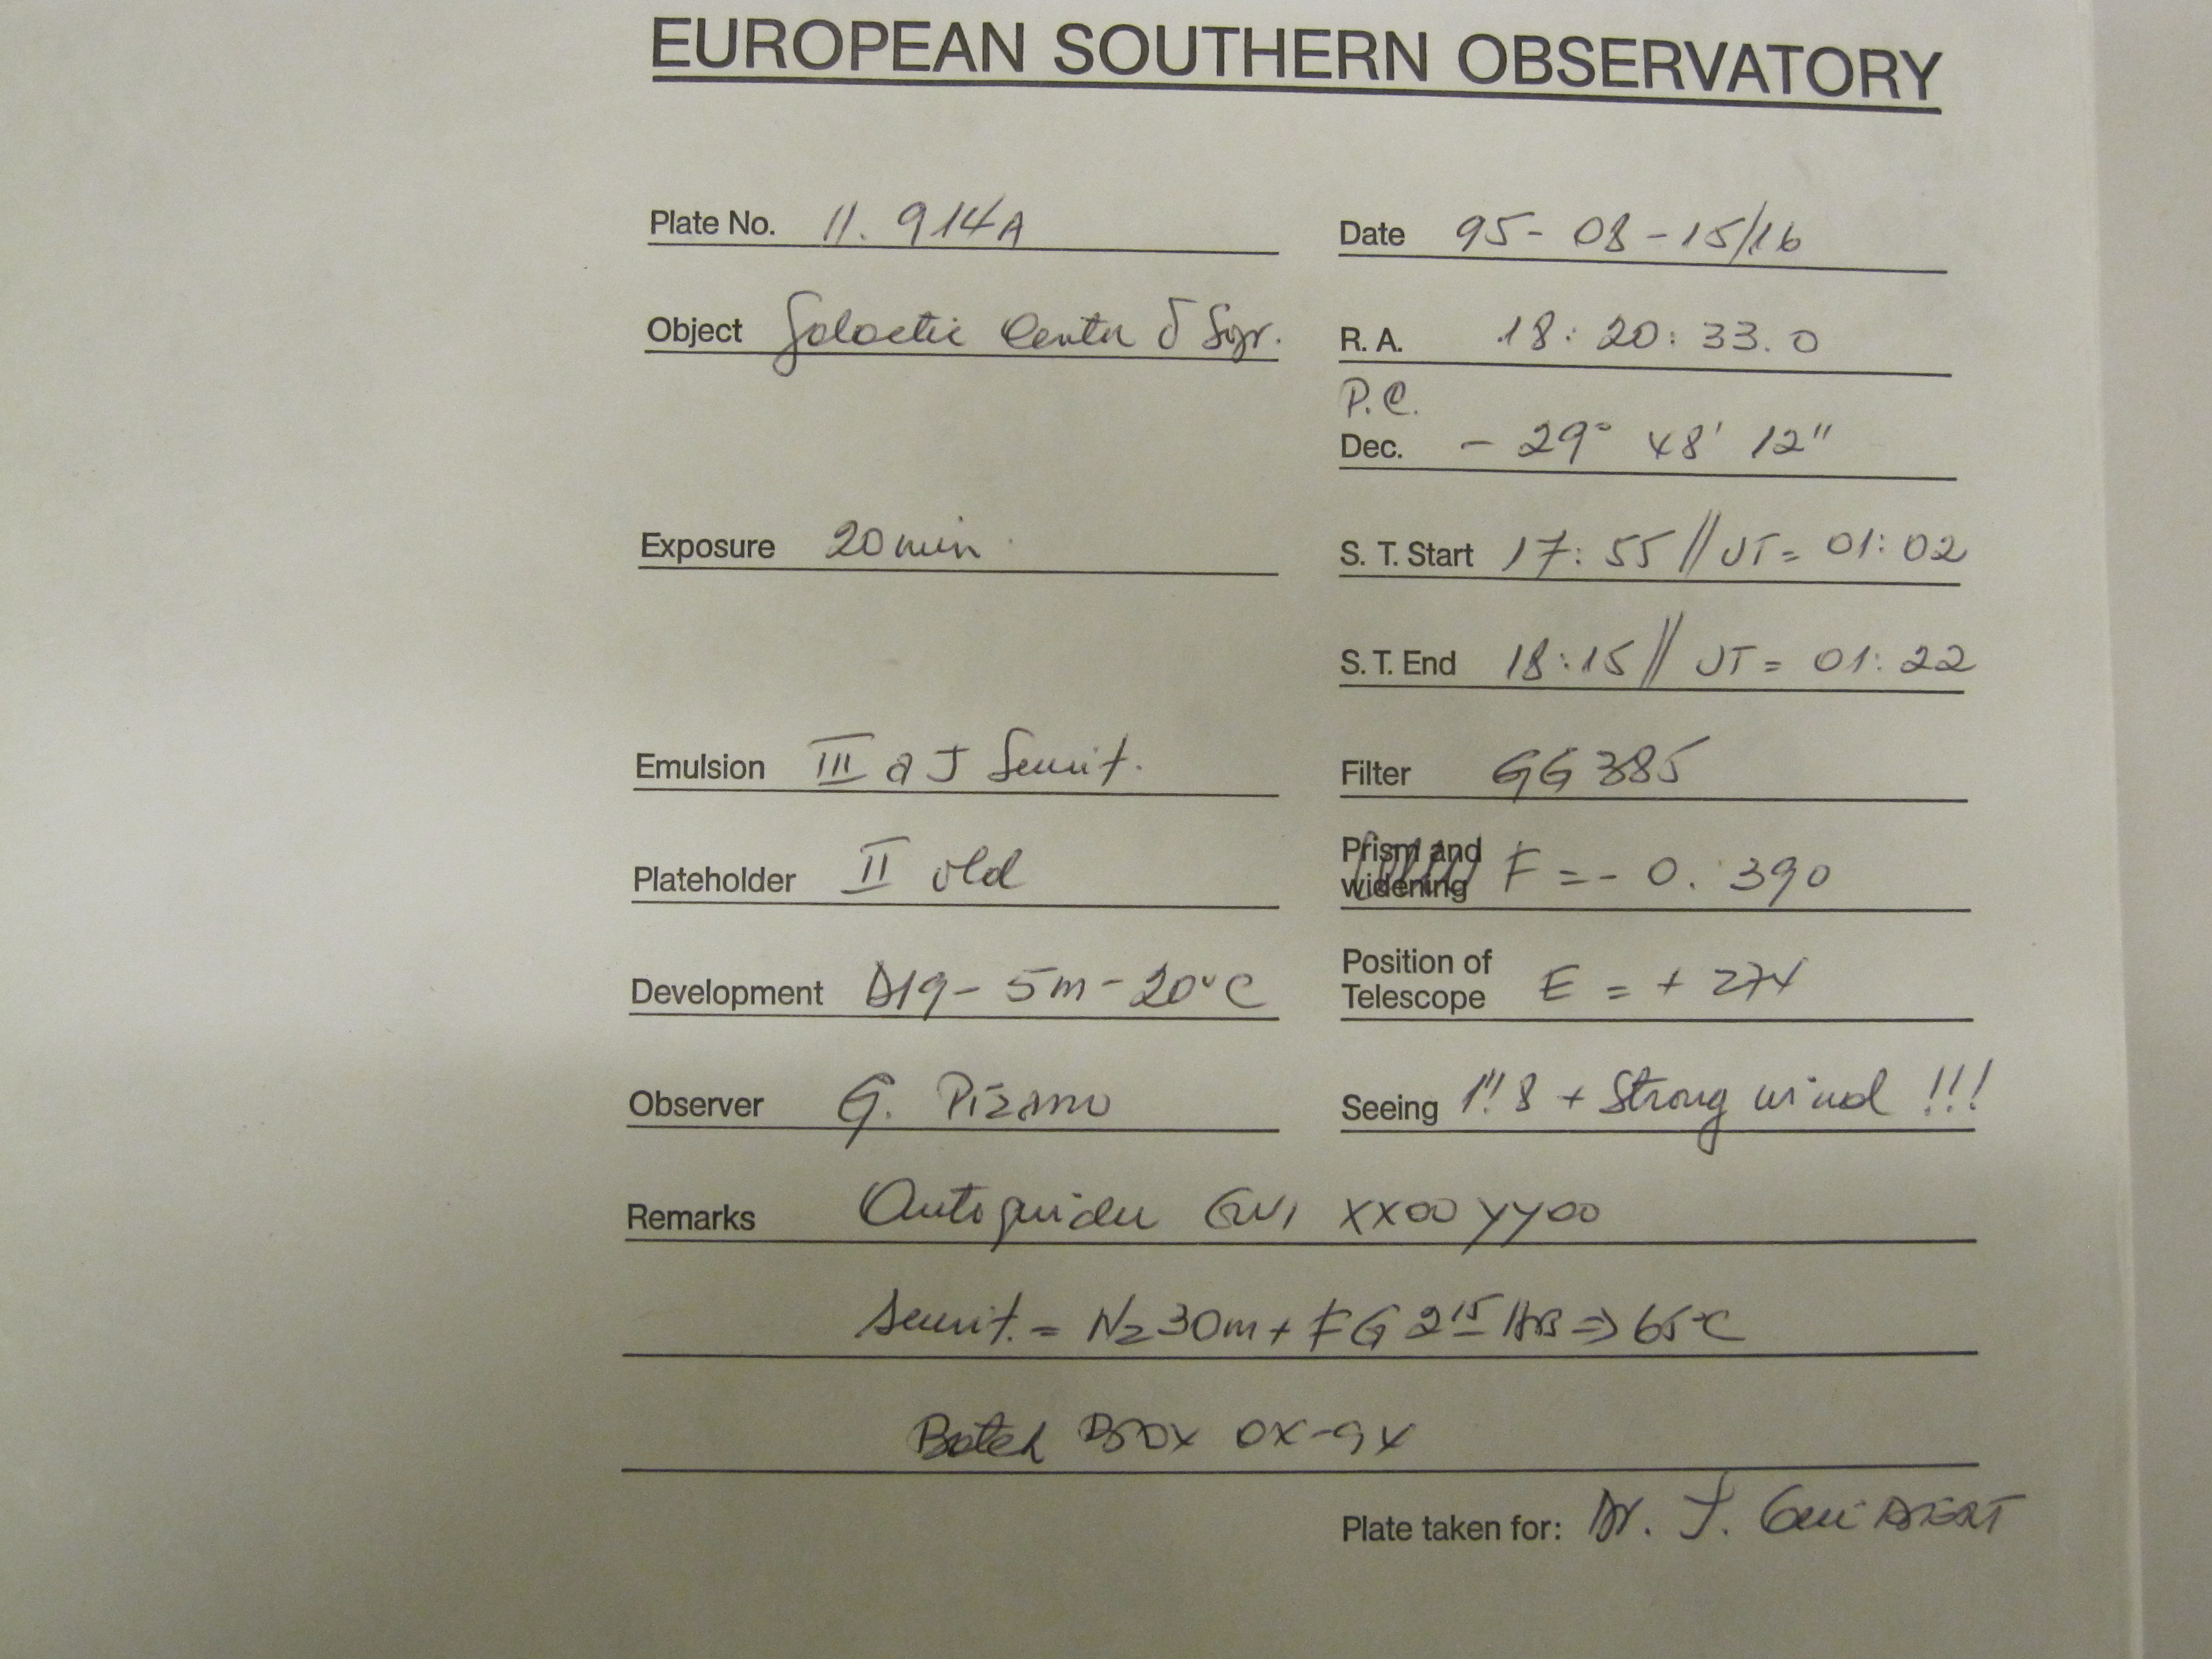 EUROPEAN SOUTHERN OBSERVATORY
Plate No. 11.914A Date 95-08-15/16
Object Galactic Center δ Sgr. R.A. 18:20:33.0
P.C.
Dec. -29° 48' 12"
Exposure 20 min S.T. Start 17:55 // UT= 01:02
S.T. End 18:15 // UT= 01:22
Emulsion III a J Sensit. Filter GG 385
Plateholder II old Prism and widening F = - 0.390
Development D19 - 5m - 20°C Position of Telescope E = + 274
Observer G. Pizarro Seeing 1"8 + Strong wind !!!
Remarks Autoguider XX00 YY00
Sensit. = N2 30m + FG 2 15 Hrs => 65°C
Batch
Plate taken for: Dr. J. GuiBERT